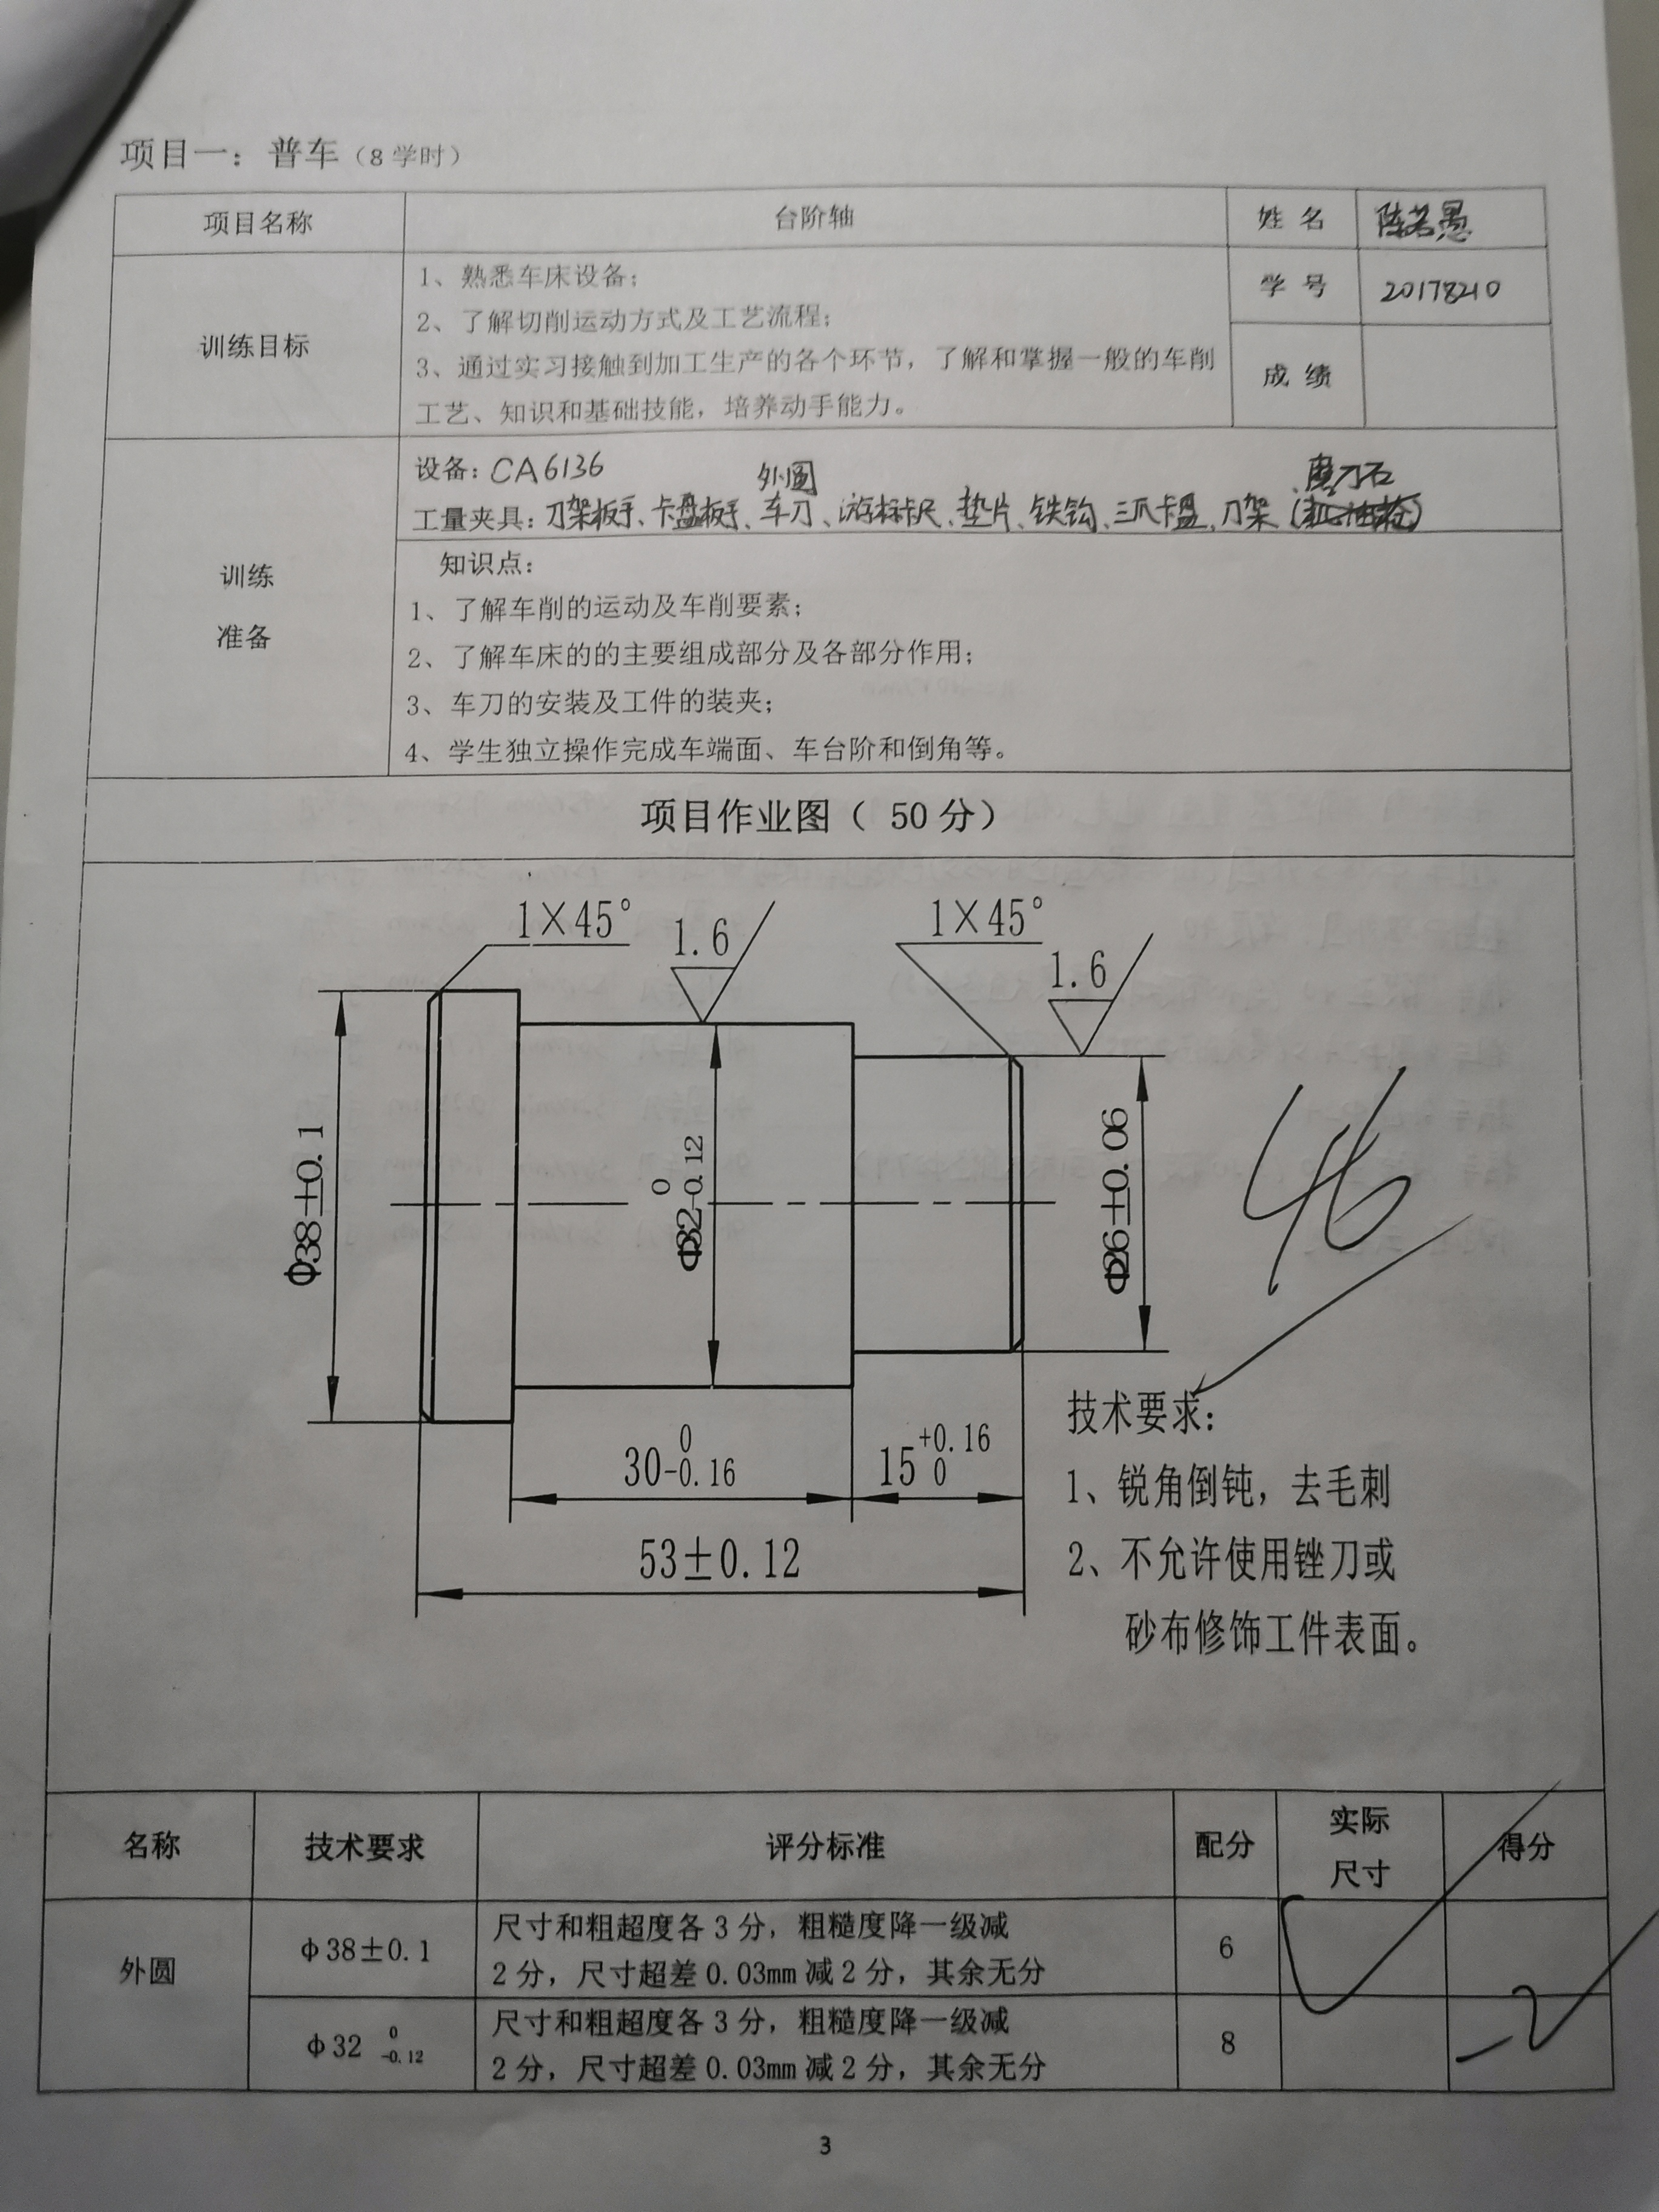 项目一：普车（8学时）
项目名称 台阶轴 姓 名 陈若愚
训练目标
1、熟悉车床设备；
2、了解切削运动方式及工艺流程；
3、通过实习接触到加工生产的各个环节，了解和掌握一般的车削
工艺、知识和基础技能，培养动手能力。
学 号 20178210
成 绩
训练
准备
设备：CA6136
外圆 磨刀石
工量夹具：刀架板手、卡盘板手、车刀、游标卡尺、垫片、铁钩、三爪卡盘、刀架
知识点：
1、了解车削的运动及车削要素；
2、了解车床的的主要组成部分及各部分作用；
3、车刀的安装及工件的装夹；
4、学生独立操作完成车端面、车台阶和倒角等。
项目作业图（ 50分）
1×45° 1.6 1×45°
1.6
Φ38±0.1
Φ32 0 -0.12
Φ26±0.06
46
30 0 -0.16
15 +0.16 0
53±0.12
技术要求：
1、锐角倒钝，去毛刺
2、不允许使用锉刀或
砂布修饰工件表面。
名称 技术要求 评分标准 配分 实际尺寸 得分
外圆
φ38±0.1
尺寸和粗超度各3分，粗糙度降一级减
2分，尺寸超差0.03mm减2分，其余无分
6
φ32 0 -0.12
尺寸和粗超度各3分，粗糙度降一级减
2分，尺寸超差0.03mm减2分，其余无分
8
-2
3